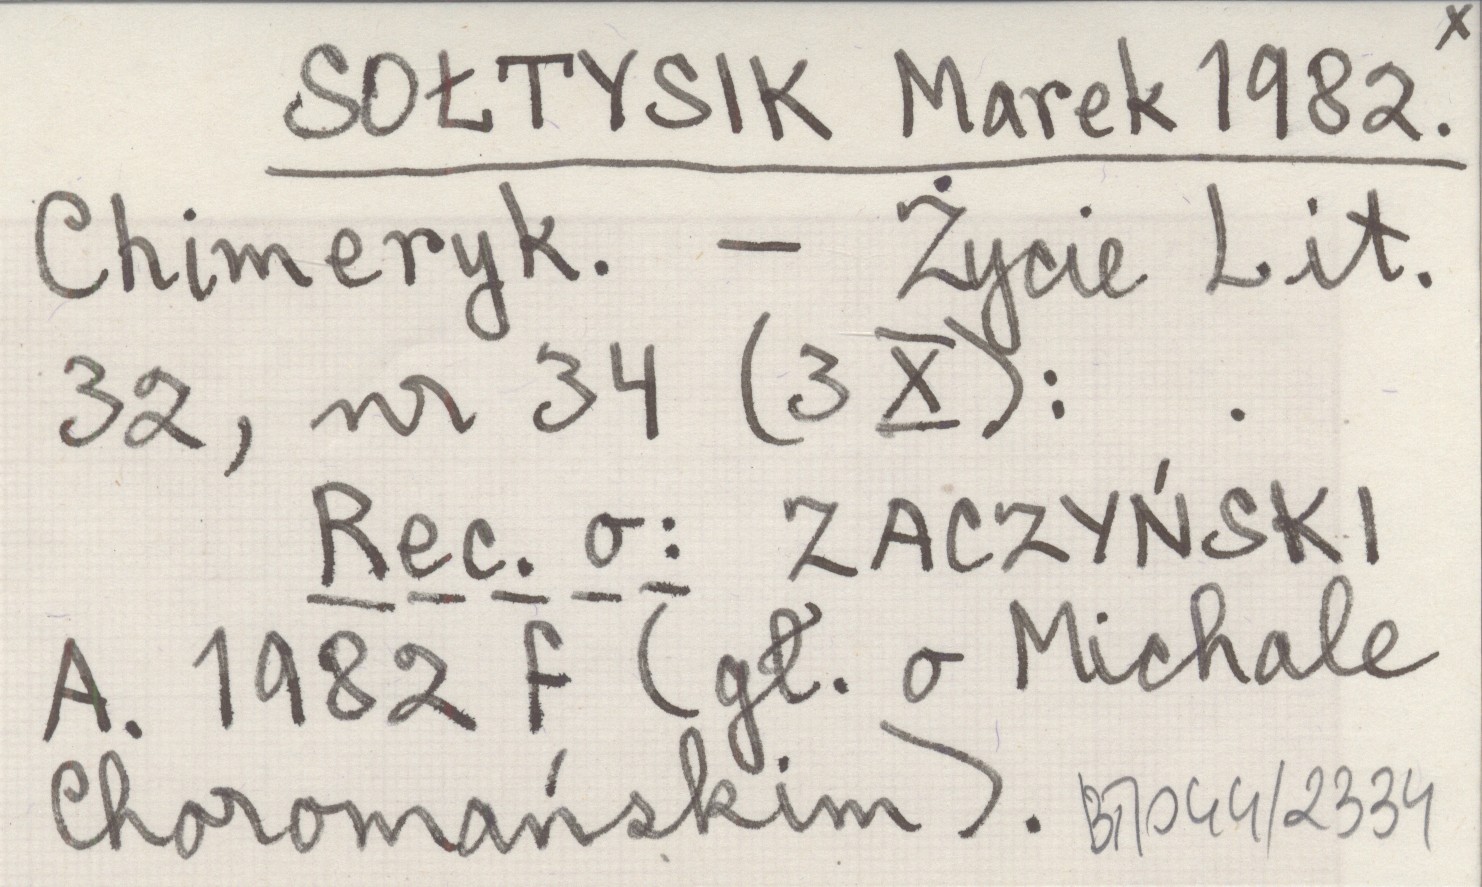 x
SOŁTYSIK Marek 1982.
Chimeryk. — Życie Lit.
32, nr 34 (3 X):   .
Rec. o: ZACZYŃSKI
A. 1982 F (gł. o Michale
Choromańskim).
44/2334